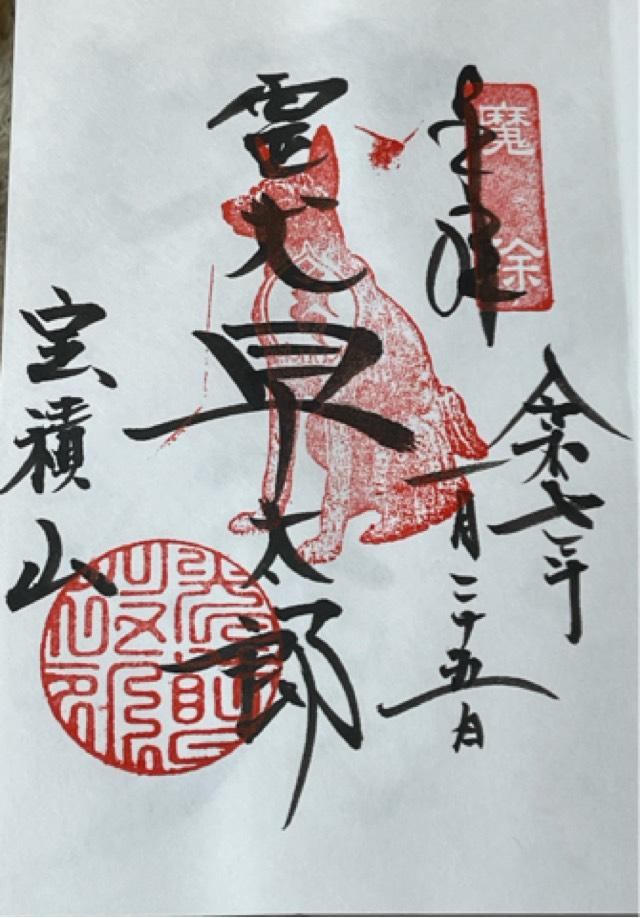 魔除
奉拝
令和七年
一月二十五日
霊犬早太郎
宝積山